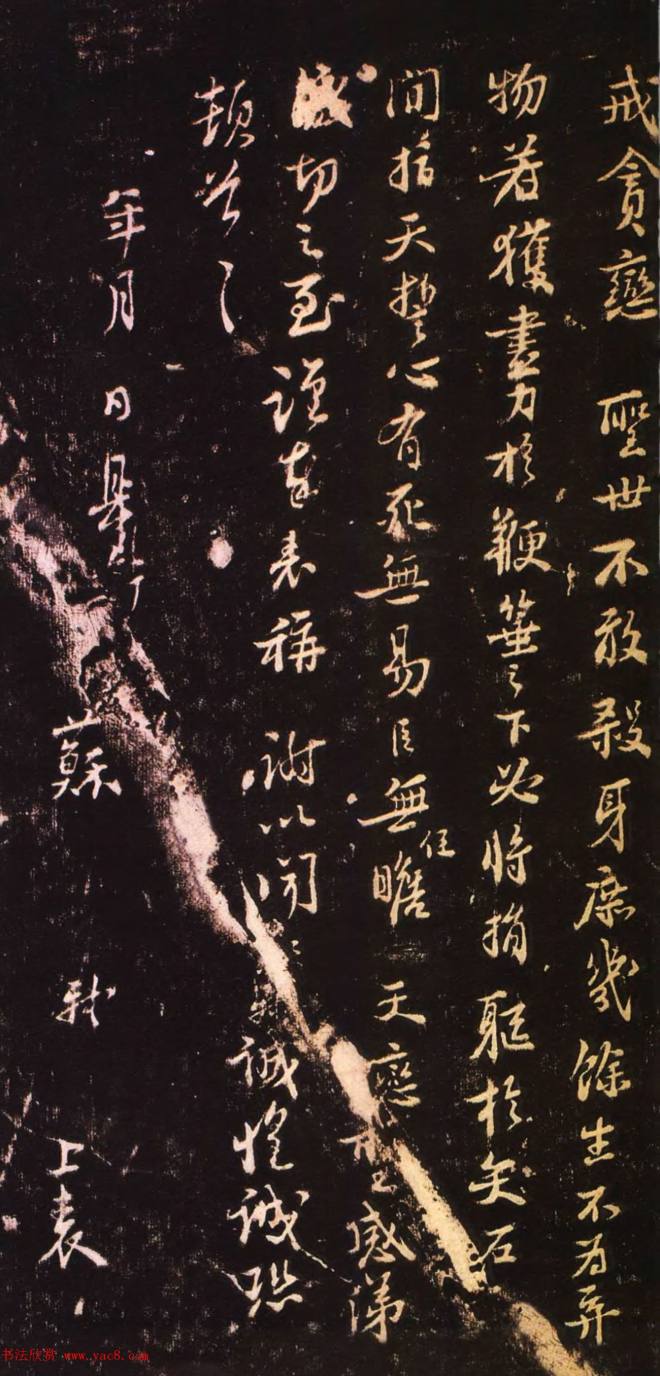 戒貪戀 聖世不敢殺身庶幾餘生不為弃
物若獲盡力於鞭箠之下必將捐軀於矢石
間指天誓心有死無易臣無任瞻 天戀聖感涕
切之至謹奉表稱 謝以聞 誠惶誠恐
頓首
年月 日具
蘇 軾 上表
书法欣赏 www.yac8.com